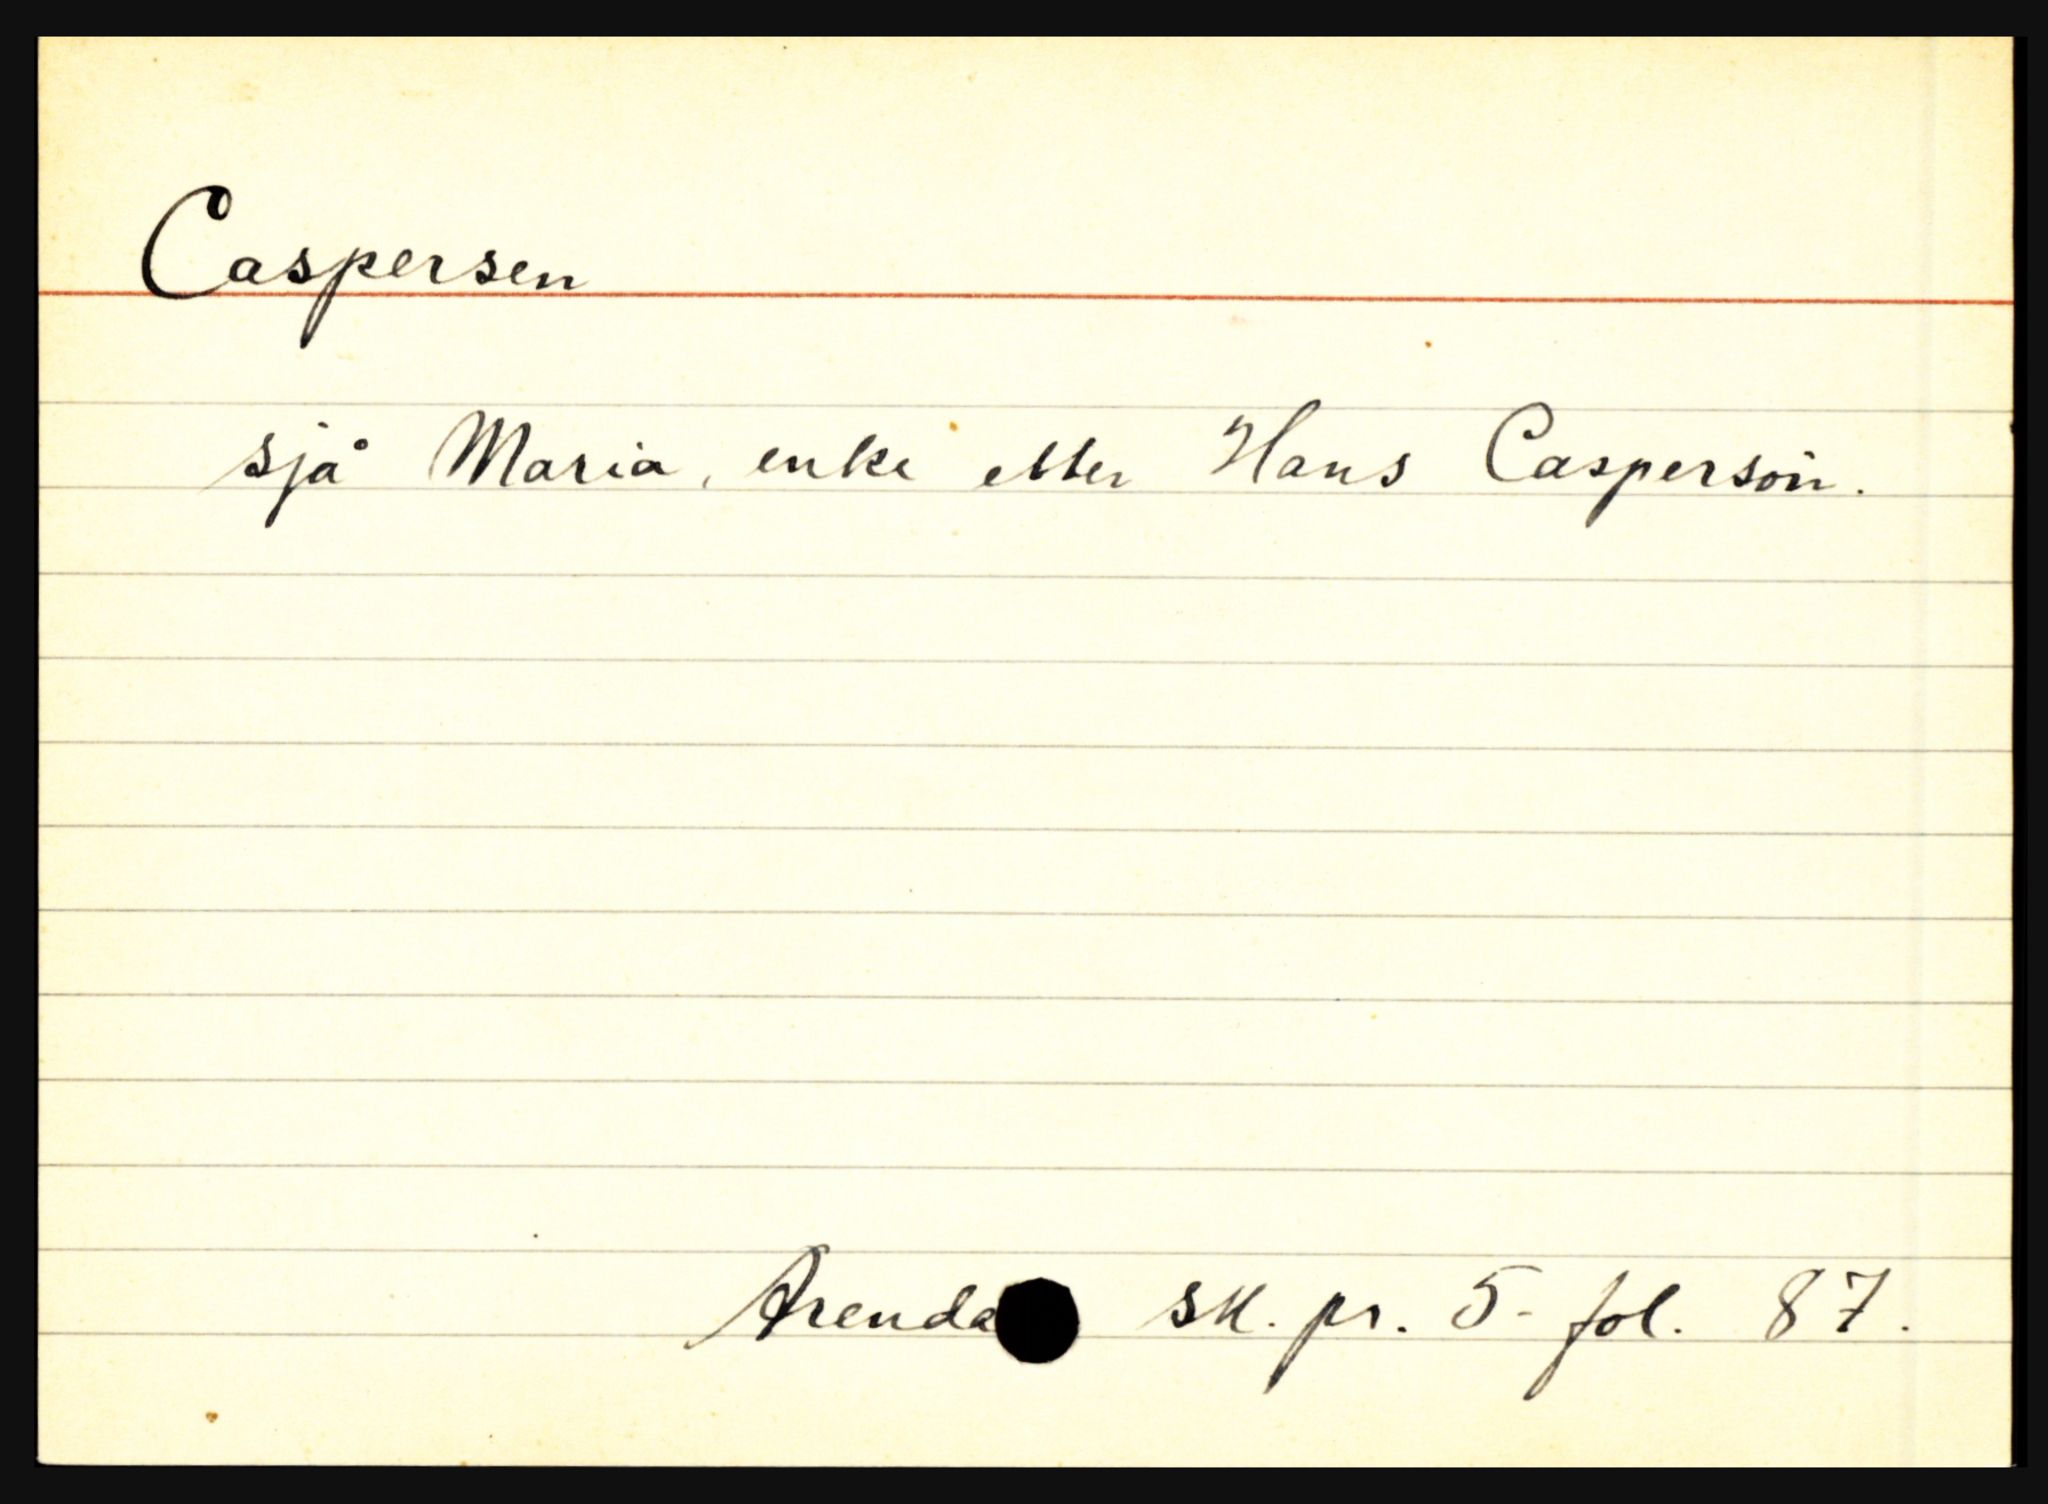 Caspersen
sjå Maria, enke etter Hans Caspersön.
Arenda sk. pr. 5 - fol. 87.